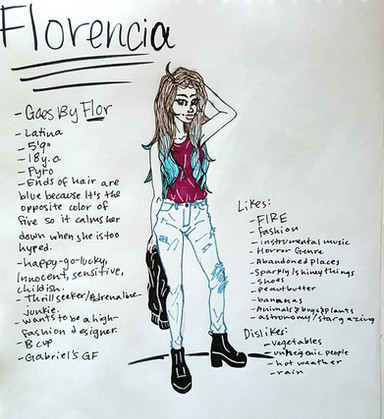 Florencia
- Goes By Flor
- Latina
- 5'9"
- 18 y.o
- Pyro
- Ends of hair are
blue because it's the
opposite color of
fire so it calms her
down when she is too
hyped.
- happy-go-lucky,
Innocent, sensitive,
childish.
- Thrillseeker/Adrenaline
junkie.
- wants to be a high-
fashion designer.
- B cup
- Gabriel's GF
Likes:
- FIRE
- fashion
- instrumental music
- Horror Genre
- Abandoned places
- Sparkly/shiney things
- shoes
- peautbutter
- bananas
- Animals/bugs/plants
- astronomy/stargazing
Dislikes:
- vegetables
- unhygenic people
- hot weather
- rain